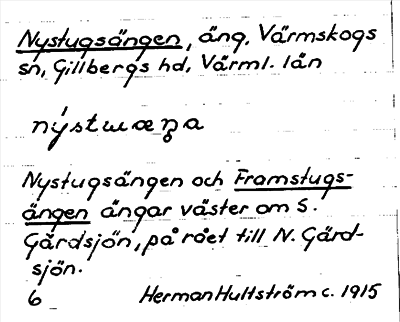 Nystugsängen, äng, Värmskogs
sn, Gillbergs hd, Värml. län
Nystugsängen och Framstugs-
ängen ängar väster om S.
Gårdsjön, på rået till N. Gård-
sjön.
6 Herman Hultström c. 1915